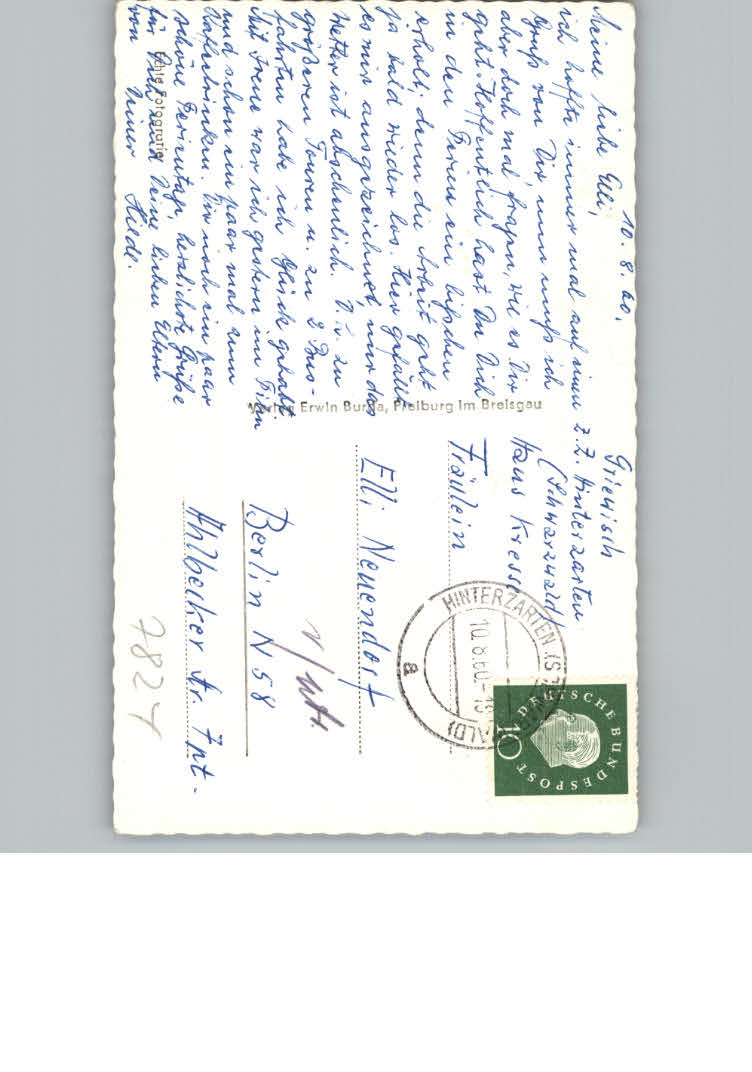 10. 8. 60.
Meine liebe Elli,
ich hoffte immer mal auf einen
Gruß von Dir, nun muß ich
aber doch mal fragen, wie es Dir
geht. Hoffentlich hast Du Dich
in den Ferien ein bißchen
erholt, denn die Arbeit geht
ja bald wieder los. Hier gefällt
es mir ausgezeichnet, nur das
Wetter ist abscheulich. D. h. zu
größeren Touren u. zu 2 Bus-
fahrten habe ich Glück gehabt.
Mit Irene war ich gestern im
und schon ein paar mal zum
Kaffeetrinken. Dir noch ein paar
schöne Ferientage, herzlichste Grüße
für Dich und Deine lieben Eltern
von Deiner Hilde.
Echte Fotografie
Verlag Erwin Burda, Freiburg im Breisgau
z. Z. Hinterzarten
(Schwarzwald)
Haus Kresse
Fräulein
Elli Neuendorf
Berlin N 58
Ahlbecker Str. 7 pt.
HINTERZARTEN (SCHWARZWALD)
10.8.60
a
DEUTSCHE BUNDESPOST
10
7824